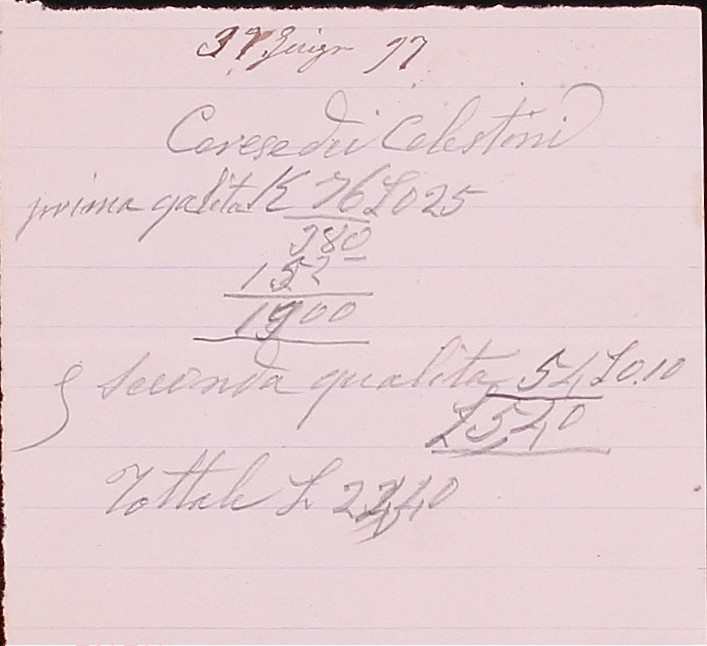 Giugn 97
Cerese dei Celestini
prima qalita K 76 L 0 25
380
152
1900
Seconda qualita 54 L 0.10
L 5 40
Tottale L 24 40